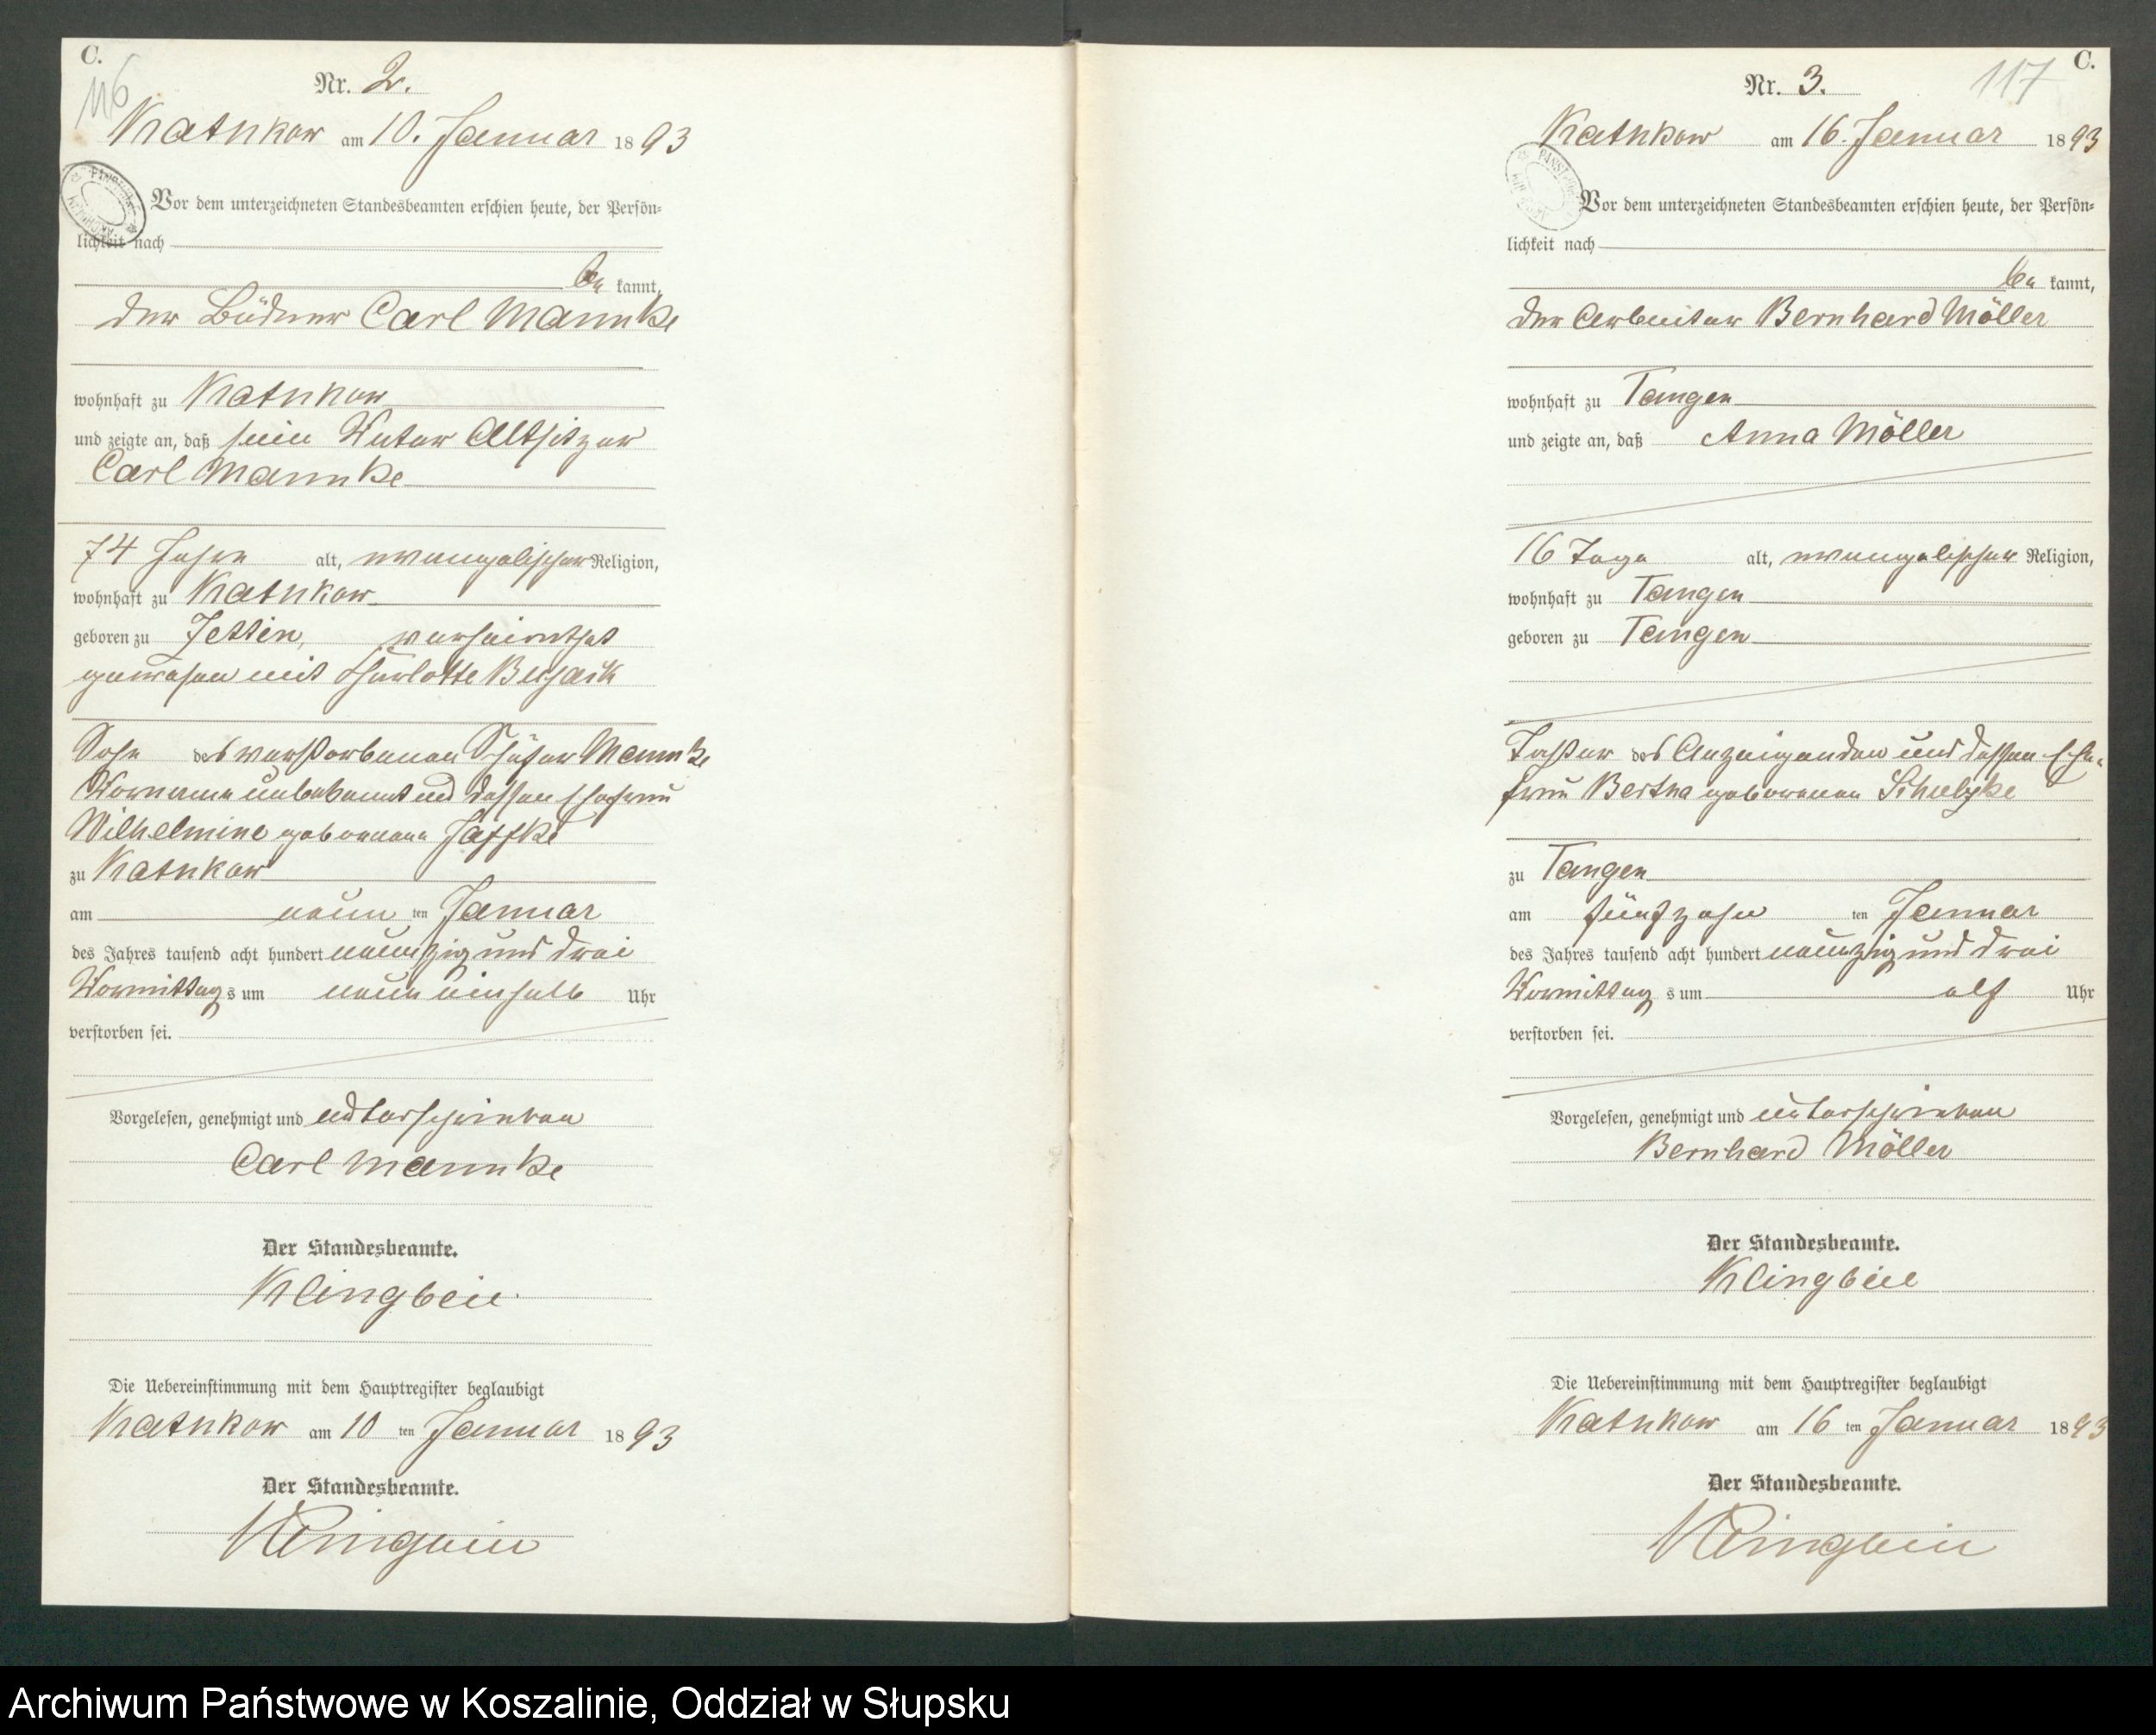 C.
116
Nr. 2.
Katnkow am 10. Januar 1893
Vor dem unterzeichneten Standesbeamten erschien heute, der Persön-
lichkeit nach
be kannt,
der Büdner Carl Mannke
wohnhaft zu Katnkow
und zeigte an, daß sein Vater Altsitzer
Carl Mannke
74 Jahre alt, evangelischer Religion,
wohnhaft zu Katnkow
geboren zu Jessen, verheirathet
gewesen mit Charlotte
Sohn des verstorbenen Schäfer Mannke
Vorname unbekannt und dessen Ehefrau
Wilhelmine geborenen
zu Katnkow
am neun ten Januar
des Jahres tausend acht hundert neunzig und drei
Vormittags um neun einhalb Uhr
verstorben sei.
Vorgelesen, genehmigt und unterschrieben
Carl Mannke
Der Standesbeamte.
Klingbeil
Die Uebereinstimmung mit dem Hauptregister beglaubigt
Katnkow am 10 ten Januar 1893
Der Standesbeamte.
Klingbeil
C.
117
Nr. 3.
Katnkow am 16. Januar 1893
Vor dem unterzeichneten Standesbeamten erschien heute, der Persön-
lichkeit nach
be kannt,
der Arbeiter Bernhard Möller
wohnhaft zu Tangen
und zeigte an, daß Anna Möller
16 Tage alt, evangelischer Religion,
wohnhaft zu Tangen
geboren zu Tangen
Tochter des Anzeigenden und dessen Ehe-
frau Bertha geborenen
zu Tangen
am fünfzehn ten Januar
des Jahres tausend acht hundert neunzig und drei
Vormittags um elf Uhr
verstorben sei.
Vorgelesen, genehmigt und unterschrieben
Bernhard Möller
Der Standesbeamte.
Klingbeil
Die Uebereinstimmung mit dem Hauptregister beglaubigt
Katnkow am 16 ten Januar 1893
Der Standesbeamte.
Klingbeil
Archiwum Państwowe w Koszalinie, Oddział w Słupsku